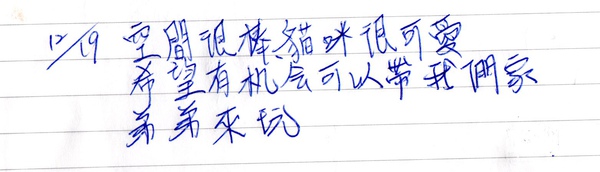 12/19 空間很棒,貓咪很可愛
希望有机会可以帶我們家
弟弟來玩